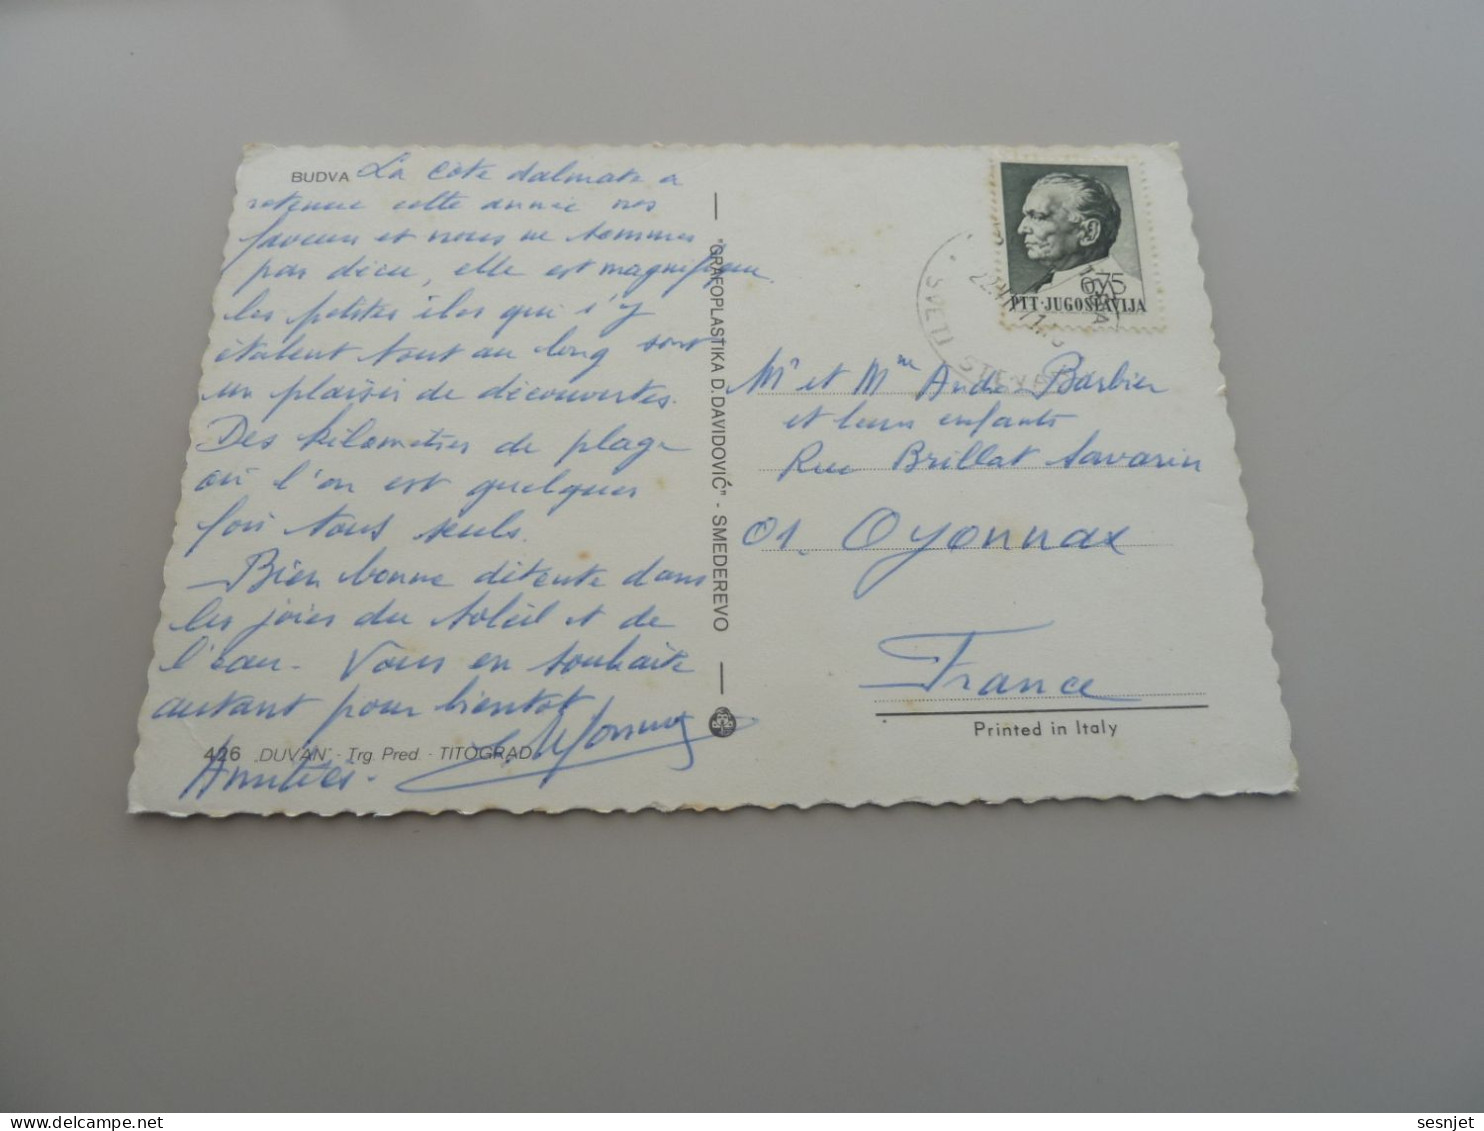 BUDVA
La côte dalmate a
retenue cette année nos
faveurs et nous ne sommes
pas déçu, elle est magnifique
les petites îles qui s'y
étalent tout au long sont
un plaisir de découvertes.
Des kilomètres de plage
où l'on est quelques
fois tous seuls.
Bien bonne détente dans
les joies du soleil et de
l'eau. Vous en souhaite
autant pour bientôt
Amitiés.
426 „DUVAN" - Trg. Pred - TITOGRAD
"GRAFOPLASTIKA D. DAVIDOVIĆ" - SMEDEREVO
0,75
PTT·JUGOSLAVIJA
SVETI STEFAN
Mr et Mme André Barbier
et leurs enfants
Rue Brillat Savarin
01. Oyonnax
France
Printed in Italy
sesnjet